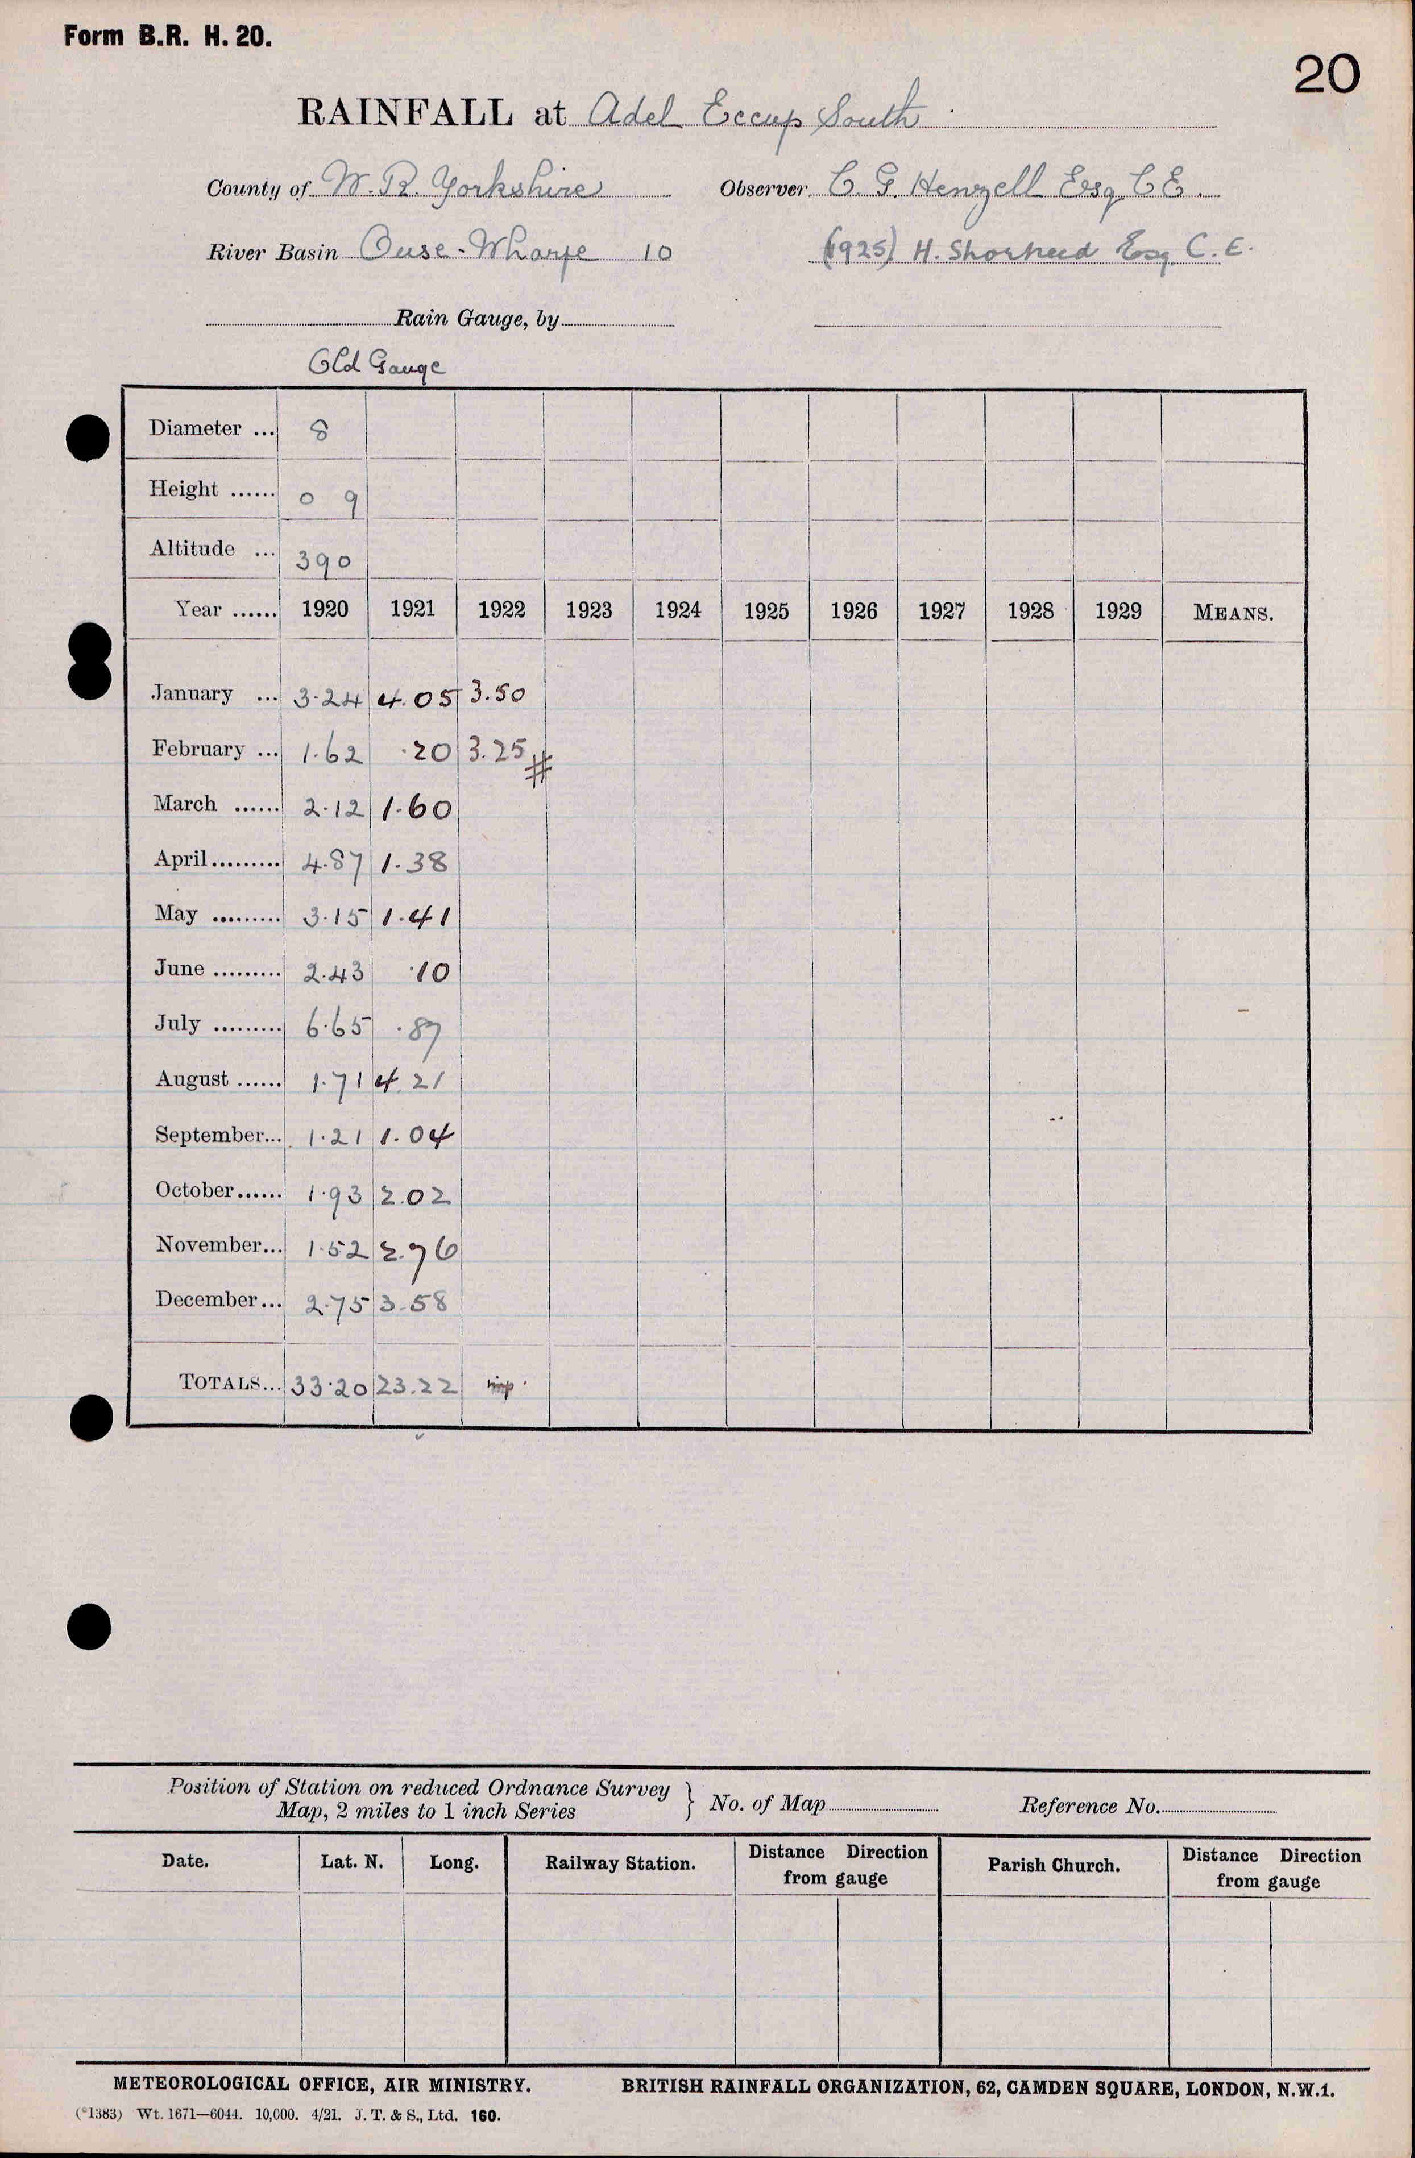 Form B.R. H. 20.
20
RAINFALL at Adel Eccup South
County of W. R. Yorkshire Observer C. G. Henzell Esq C E.
River Basin Ouse - Wharfe 10 (1925) H. Shortreed Esq. C. E.
Rain Gauge, by
Old Gauge
Diameter ... 8
Height ...... 0 9
Altitude ... 390
Year ...... 1920 1921 1922 1923 1924 1925 1926 1927 1928 1929 MEANS.
January ... 3.24 4.05 3.50
February ... 1.62 .20 3.25 #
March ...... 2.12 1.60
April ......... 4.87 1.38
May ......... 3.15 1.41
June ......... 2.43 .10
July ......... 6.65 .87
August ...... 1.71 4.21
September... 1.21 1.04
October ...... 1.93 2.02
November... 1.52 2.76
December ... 2.75 3.58
TOTALS... 33.20 23.22
Position of Station on reduced Ordnance Survey
Map, 2 miles to 1 inch Series } No. of Map Reference No.
Date. Lat. N. Long. Railway Station. Distance Direction from gauge Parish Church. Distance Direction from gauge
METEOROLOGICAL OFFICE, AIR MINISTRY. BRITISH RAINFALL ORGANIZATION, 62, CAMDEN SQUARE, LONDON, N.W.1.
(*1383) Wt. 1671—6044. 10,000. 4/21. J. T. & S., Ltd. 160.